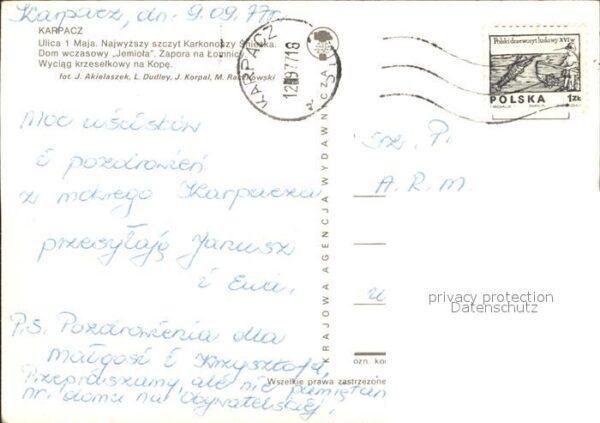 Karpacz, dn. 9.09.77r
KARPACZ
Ulica 1 Maja. Najwyższy szczyt Karkonoszy Śnieżka.
Dom wczasowy „Jemioła”. Zapora na Łomnicy.
Wyciąg krzesełkowy na Kopę.
fot. J. Akielaszek, L. Dudley, J. Korpal, M. Raczkowski
Moc uścisków
i pozdrowień
z mokrego Karpacza
przesyłają Janusz
i Ewa.
P.S. Pozdrowienia dla
Małgosi i Krzysztofa,
Przepraszamy, ale nie pamiętam
nr. domu na Obywatelskiej.
KRAJOWA AGENCJA WYDAWNICZA
KARPACZ
Polski drzeworyt ludowy XVI w
POLSKA 1 ZŁ
Sz. P.
A. R. M.
privacy protection
Datenschutz
ozn. ko
Wszelkie prawa zastrzeżone